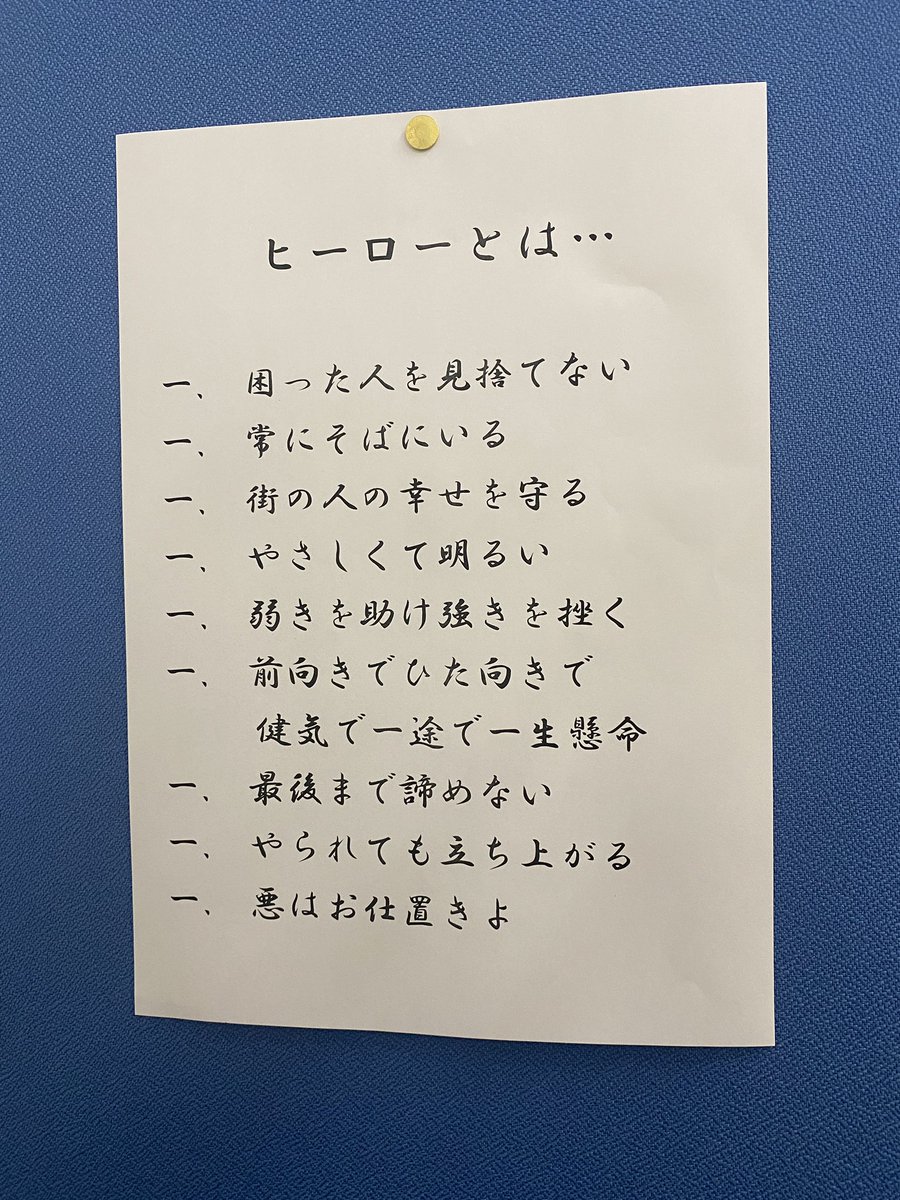 ヒーローとは…
一、困った人を見捨てない
一、常にそばにいる
一、街の人の幸せを守る
一、やさしくて明るい
一、弱きを助け強きを挫く
一、前向きでひた向きで
健気で一途で一生懸命
一、最後まで諦めない
一、やられても立ち上がる
一、悪はお仕置きよ